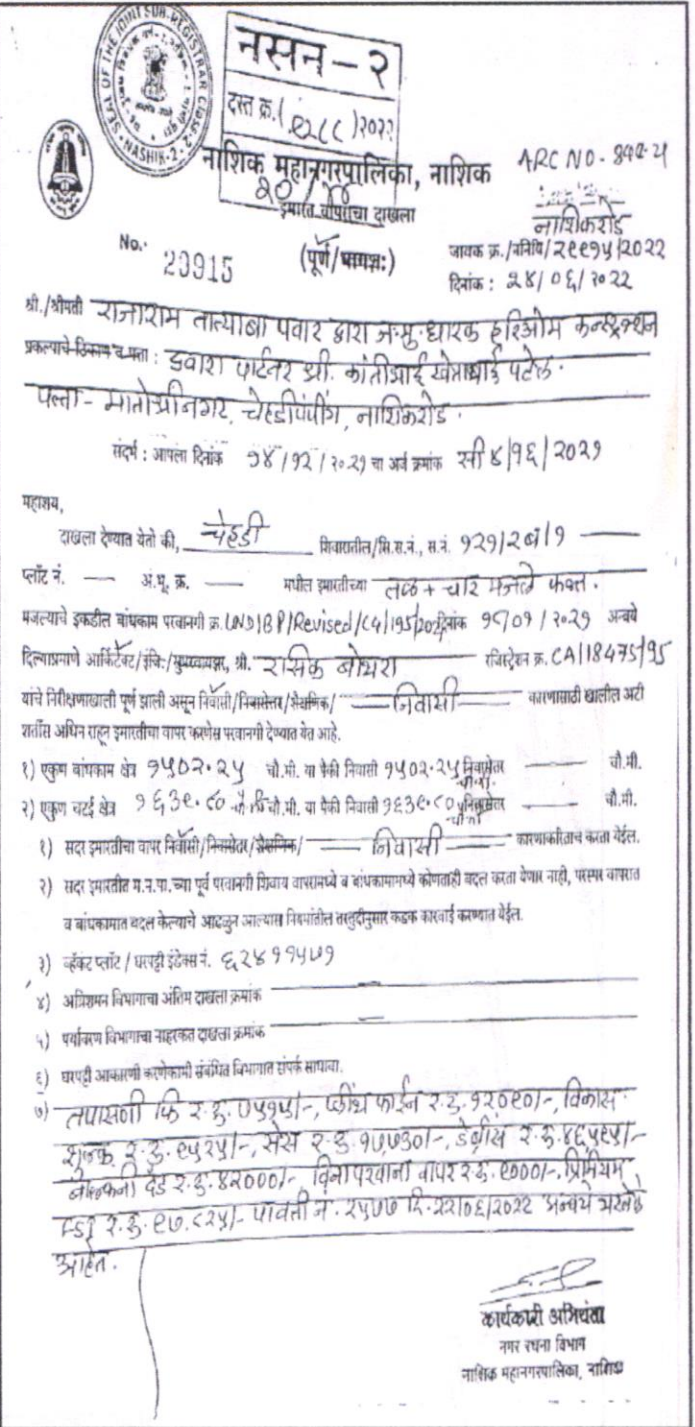 SEAL OF THE JOINT SUB-REGISTRAR CLASS-2
NASHIK-2
नसन - २
दस्त क्र.( ९२८८ )२०२२
२०/
ARC NO -
नाशिक महानगरपालिका, नाशिक
इमारत वापराचा दाखला
नाशिकरोड
(पूर्ण/भागशः)
No. 23915
जावक क्र./ननिवि/२९९१५/२०२२
दिनांक : २४/०६/२०२२
श्री./श्रीमती राजाराम तात्याबा पवार द्वारा ज.मु.धारक हरिओम कन्स्ट्रक्शन
प्रकल्पाचे ठिकाण व पत्ता : द्वारा पार्टनर श्री. कांतीभाई खेताभाई पटेल.
पत्ता - मातोश्रीनगर, चेहडीपंपींग, नाशिकरोड.
संदर्भ : आपला दिनांक १४/१२/२०२१ चा अर्ज क्रमांक सी ४/१६/२०२१
महाशय,
दाखला देण्यात येतो की, चेहडी शिवारातील/सि.स.नं., स.नं. १२१/२ब/१
प्लॉट नं. — अं.भू.क्र. — मधील इमारतीच्या तळ + चार मजले फक्त.
मजल्याचे इकडील बांधकाम परवानगी क्र. LND/BP/Revised/C4/195/२०२१ दिनांक १८/०१/२०२१ अन्वये
दिल्याप्रमाणे आर्किटेक्ट/इंजि./सुपरवायझर, श्री. रसिक बोथरा रजिस्ट्रेशन क्र. CA/18475/95
यांचे निरीक्षणाखाली पूर्ण झाली असून निवासी/निवासेत्तर/शैक्षणिक/ निवासी कारणासाठी खालील अटी
शर्तीस अधिन राहून इमारतीचा वापर करणेस परवानगी देण्यात येत आहे.
१) एकुण बांधकाम क्षेत्र १५०२.२५ चौ.मी. या पैकी निवासी १५०२.२५ चौ.मी. निवासेत्तर — चौ.मी.
२) एकुण चटई क्षेत्र १६३९.८० चौ.मी. या पैकी निवासी १६३९.८० चौ.मी. निवासेत्तर — चौ.मी.
१) सदर इमारतीचा वापर निवासी/निवासेत्तर/शैक्षणिक/ निवासी कारणाकरीताच करता येईल.
२) सदर इमारतीत म.न.पा.च्या पूर्व परवानगी शिवाय वापरामध्ये व बांधकामामध्ये कोणताही बदल करता येणार नाही, परस्पर वापरात
व बांधकामात बदल केल्याचे आढळुन आल्यास नियमांतील तरतुदीनुसार कडक कारवाई करण्यात येईल.
३) व्हॅकंट प्लॉट / घरपट्टी इंडेक्स नं. ६२४११५७१
४) अग्निशमन विभागाचा अंतिम दाखला क्रमांक
५) पर्यावरण विभागाचा नाहरकत दाखला क्रमांक
६) घरपट्टी आकारणी करणेकामी संबंधित विभागात संपर्क साधावा.
७) तपासणी फि र.रु. ७५१५/-, प्लींथ फाईन र.रु. १२०९०/-, विकास
शुल्क र.रु. ९५२५/-, सेस र.रु. १७,७३०/-, डेब्रीस र.रु. ४६५९५/-
बाल्कनी दंड र.रु. ४२०००/-, विनापरवाना वापर र.रु. ९०००/-, प्रिमियम
FSI र.रु. ९७,८२५/- पावती नं. २५७७ दि. २२/०६/२०२२ अन्वये भरलेले
आहेत.
कार्यकारी अभियंता
नगर रचना विभाग
नाशिक महानगरपालिका, नाशिक